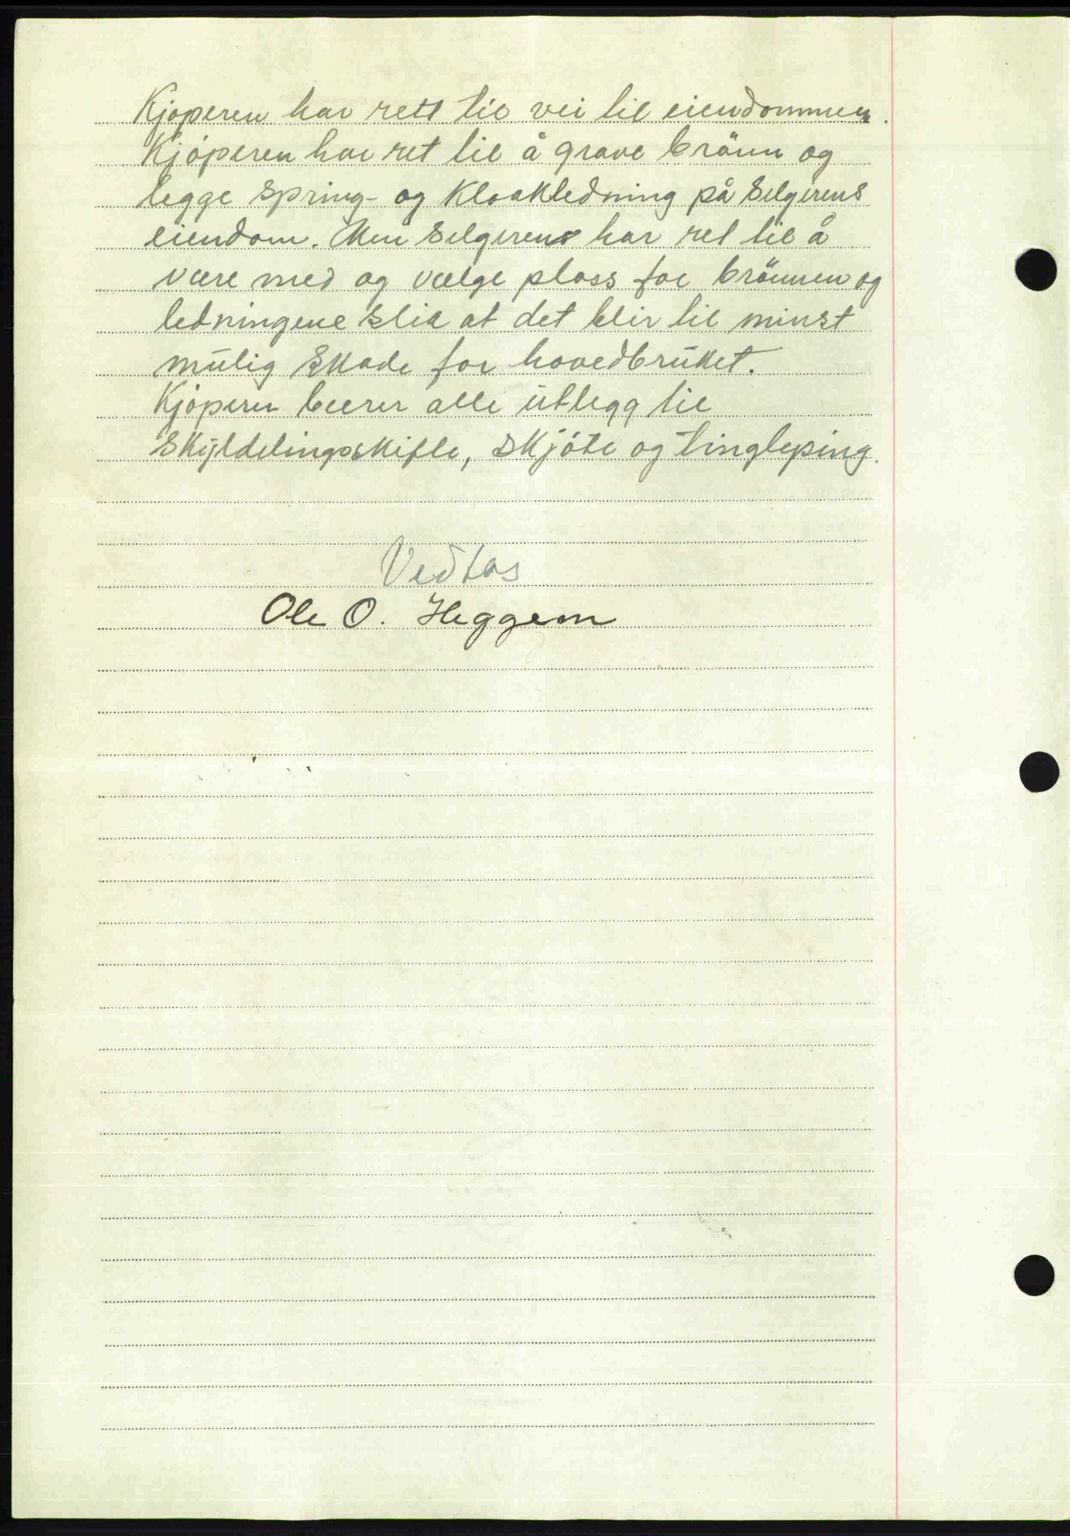 Kjøperen har rett til vei til eiendommen.
Kjøperen har ret til å grave brönn og
legge Spring- og Kloakledning på Selgerens
eiendom. Men Selgerens har ret til å
være med og vælge plass for brönnen og
ledningene slik at det blir til minst
mulig skade for hovedbruket.
Kjøperen bærer alle utlegg til
Skyldelingsskifte, Skjöte og tinglysing.
Vedtas
Ole O. Heggem